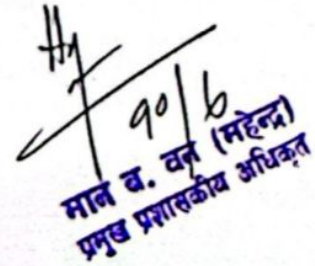 ९०/६
मान ब. वन (महेन्द्र)
प्रमुख प्रशासकीय अधिकृत